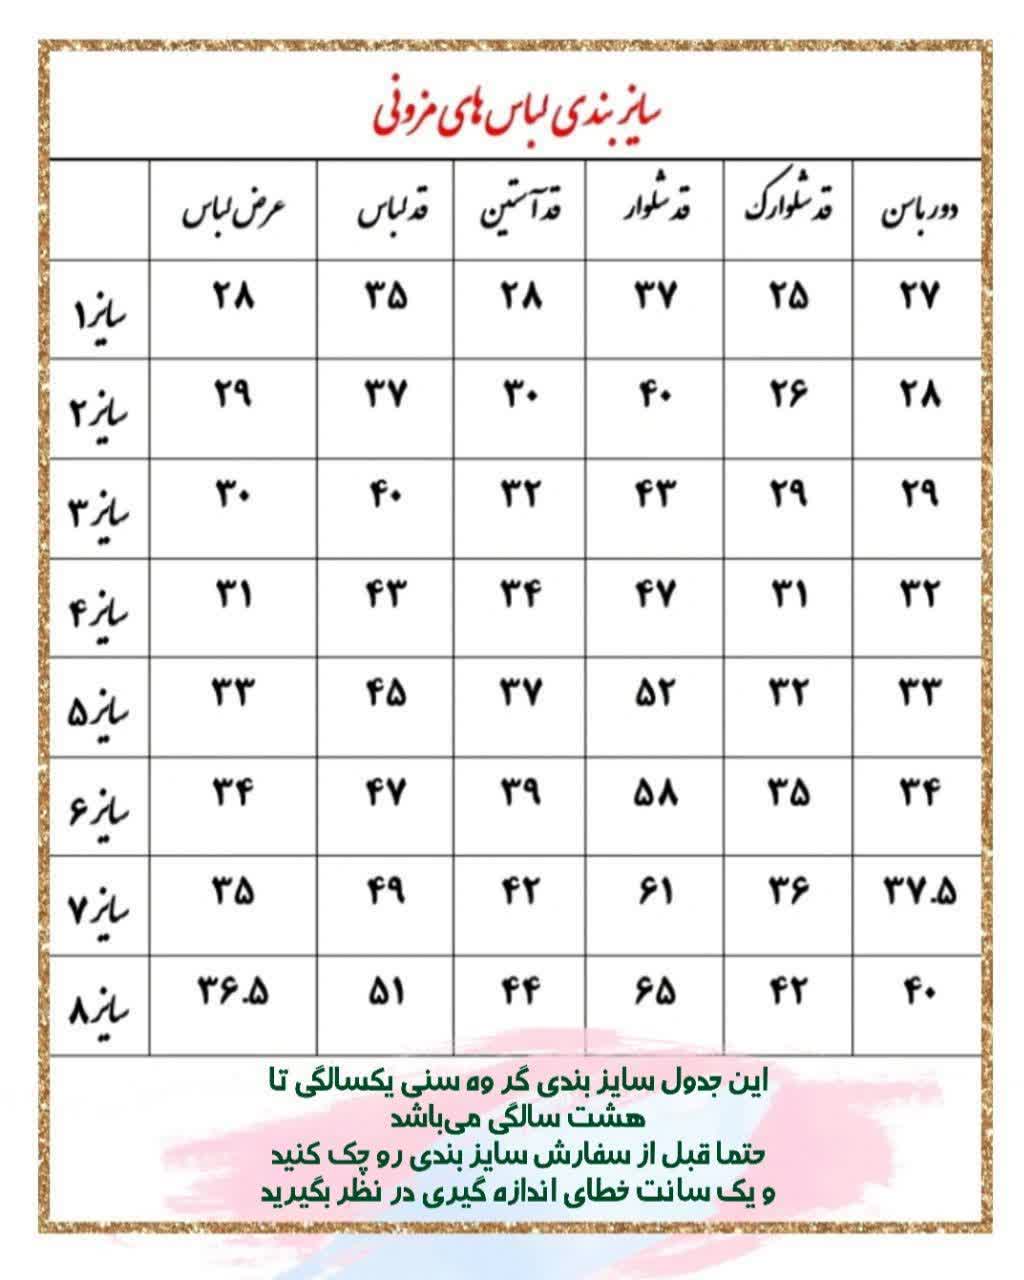 سایز بندی لباس های مزونی
عرض لباس قد لباس قد آستین قد شلوار قد شلوارک دور باسن
سایز ۱ ۲۸ ۳۵ ۲۸ ۳۷ ۲۵ ۲۷
سایز ۲ ۲۹ ۳۷ ۳۰ ۴۰ ۲۶ ۲۸
سایز ۳ ۳۰ ۴۰ ۳۲ ۴۳ ۲۹ ۲۹
سایز ۴ ۳۱ ۴۳ ۳۴ ۴۷ ۳۱ ۳۲
سایز ۵ ۳۳ ۴۵ ۳۷ ۵۲ ۳۲ ۳۳
سایز ۶ ۳۴ ۴۷ ۳۹ ۵۸ ۳۵ ۳۴
سایز ۷ ۳۵ ۴۹ ۴۲ ۶۱ ۳۶ ۳۷.۵
سایز ۸ ۳۶.۵ ۵۱ ۴۴ ۶۵ ۴۲ ۴۰
این جدول سایز بندی گر وه سنی یکسالگی تا
هشت سالگی می‌باشد
حتما قبل از سفارش سایز بندی رو چک کنید
و یک سانت خطای اندازه گیری در نظر بگیرید